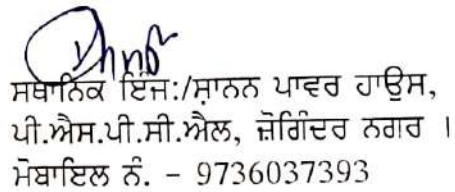 ਸਥਾਨਿਕ ਇੰਜ:/ਸ਼ਾਨਨ ਪਾਵਰ ਹਾਉਸ,
ਪੀ.ਐਸ.ਪੀ.ਸੀ.ਐਲ, ਜ਼ੋਗਿੰਦਰ ਨਗਰ ।
ਮੋਬਾਇਲ ਨੰ. - 9736037393